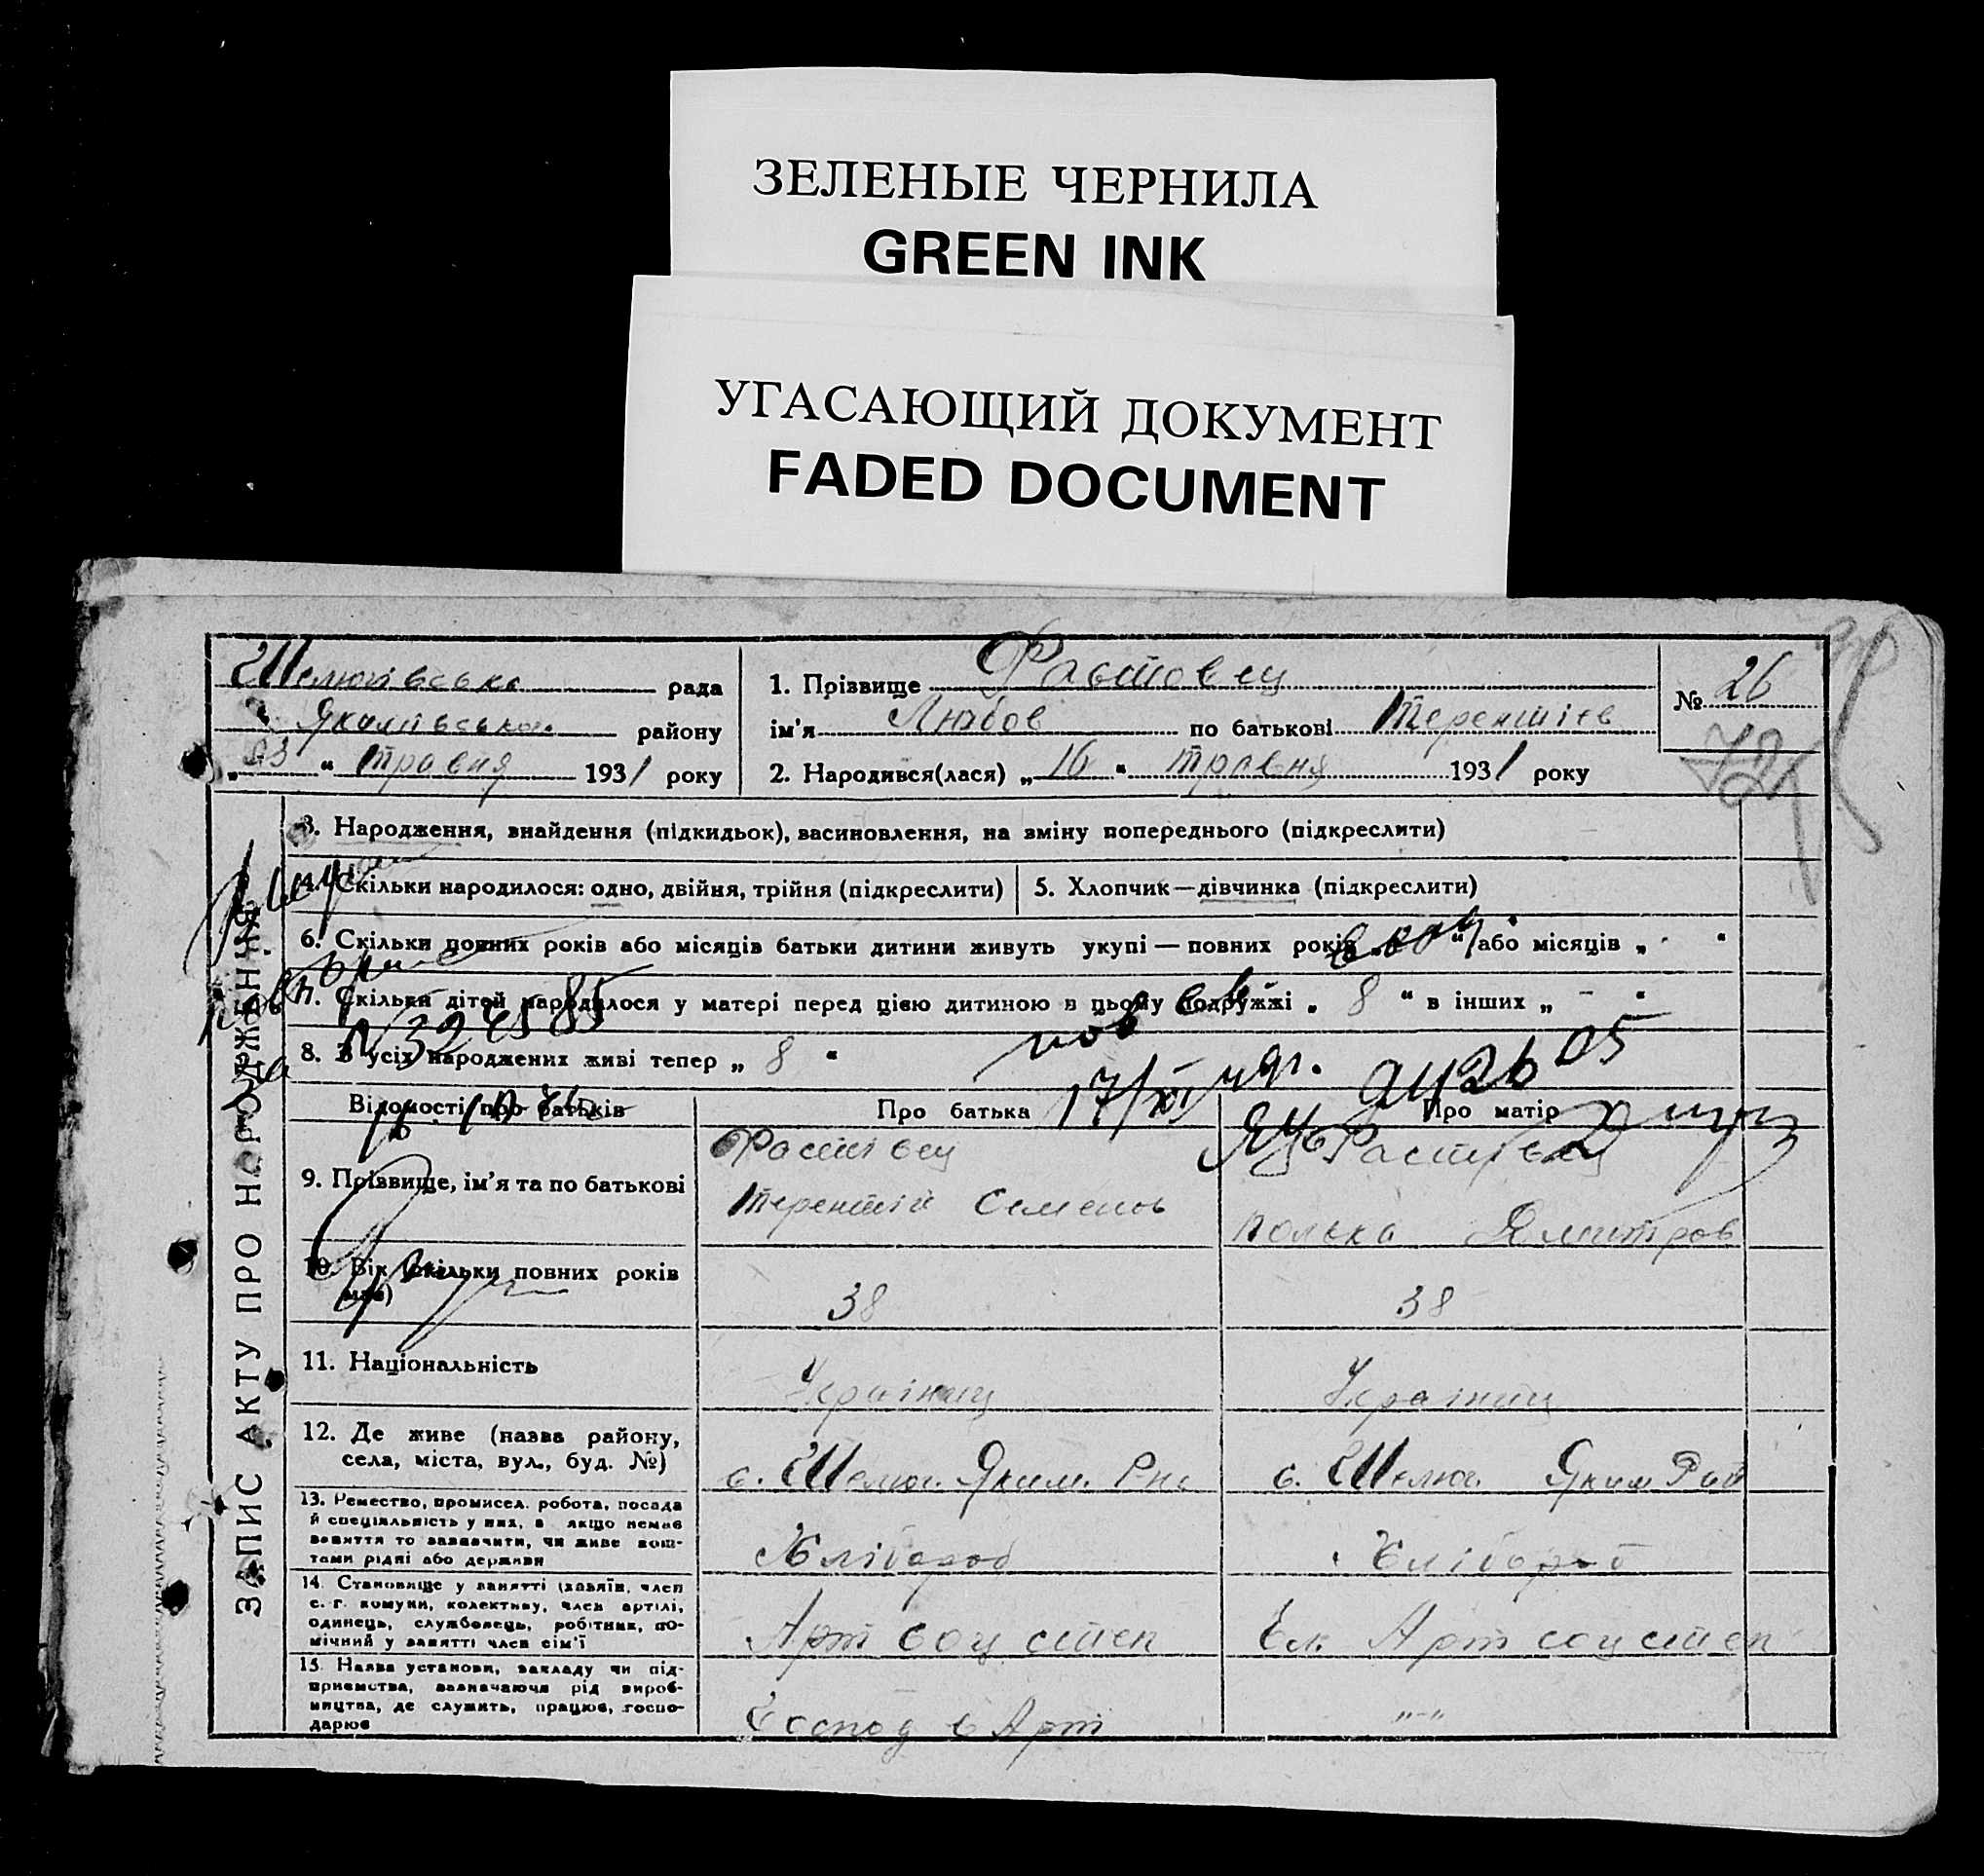 ЗЕЛЕНЫЕ ЧЕРНИЛА
GREEN INK
УГАСАЮЩИЙ ДОКУМЕНТ
FADED DOCUMENT
Шелюгівська рада
Якимівська району
23 " травня 1931 року
1. Прізвище Растовец
ім'я Любов по батькові Терентієв
2. Народився(лася) „ 16 " травня 1931 року
№ 26
ЗАПИС АКТУ ПРО НАРОДЖЕННЯ
3. Народження, знайдення (підкидьок), васиновлення, на зміну попереднього (підкреслити)
4. Скільки народилося: одно, двійня, трійня (підкреслити)
5. Хлопчик—дівчинка (підкреслити)
6. Скільки повних років або місяців батьки дитини живуть укупі — повних років " або місяців „ "
7. Скільки дітей народилося у матері перед цією дитиною в цьому подружжі „ 8 " в інших „ – "
8. З усіх народжених живі тепер „ 8 "
17/XI
Відомості про батьків
Про батька
Про матір
9. Прізвище, ім'я та по батькові
Растівец
Терентій Семенов
Растівец
Полька Дмитров
10. Вік (скільки повних років має)
38
38
11. Національність
Українец
Українец
12. Де живе (назва району, села, міста, вул., буд. №)
с. Шелюг. Яким.
с. Шелюг. Яким Рай
13. Ремество, промисел, робота, посада й спеціяльність у них, а якщо немає заняття то зазначити, чи живе коштами рідні або держави
Хлібороб
Хлібороб
14. Становище у занятті (хазяїн, член с.-г. комуни, колективу, член артілі, одинець, службовець, робітник, помічний у занятті член сім'ї
Арт соц степ
Чл. Арт соц степ
15. Назва установи, закладу чи підприємства, зазначаючи рід виробництва, де служить, працює, господарює
Господ в Арт
„–„